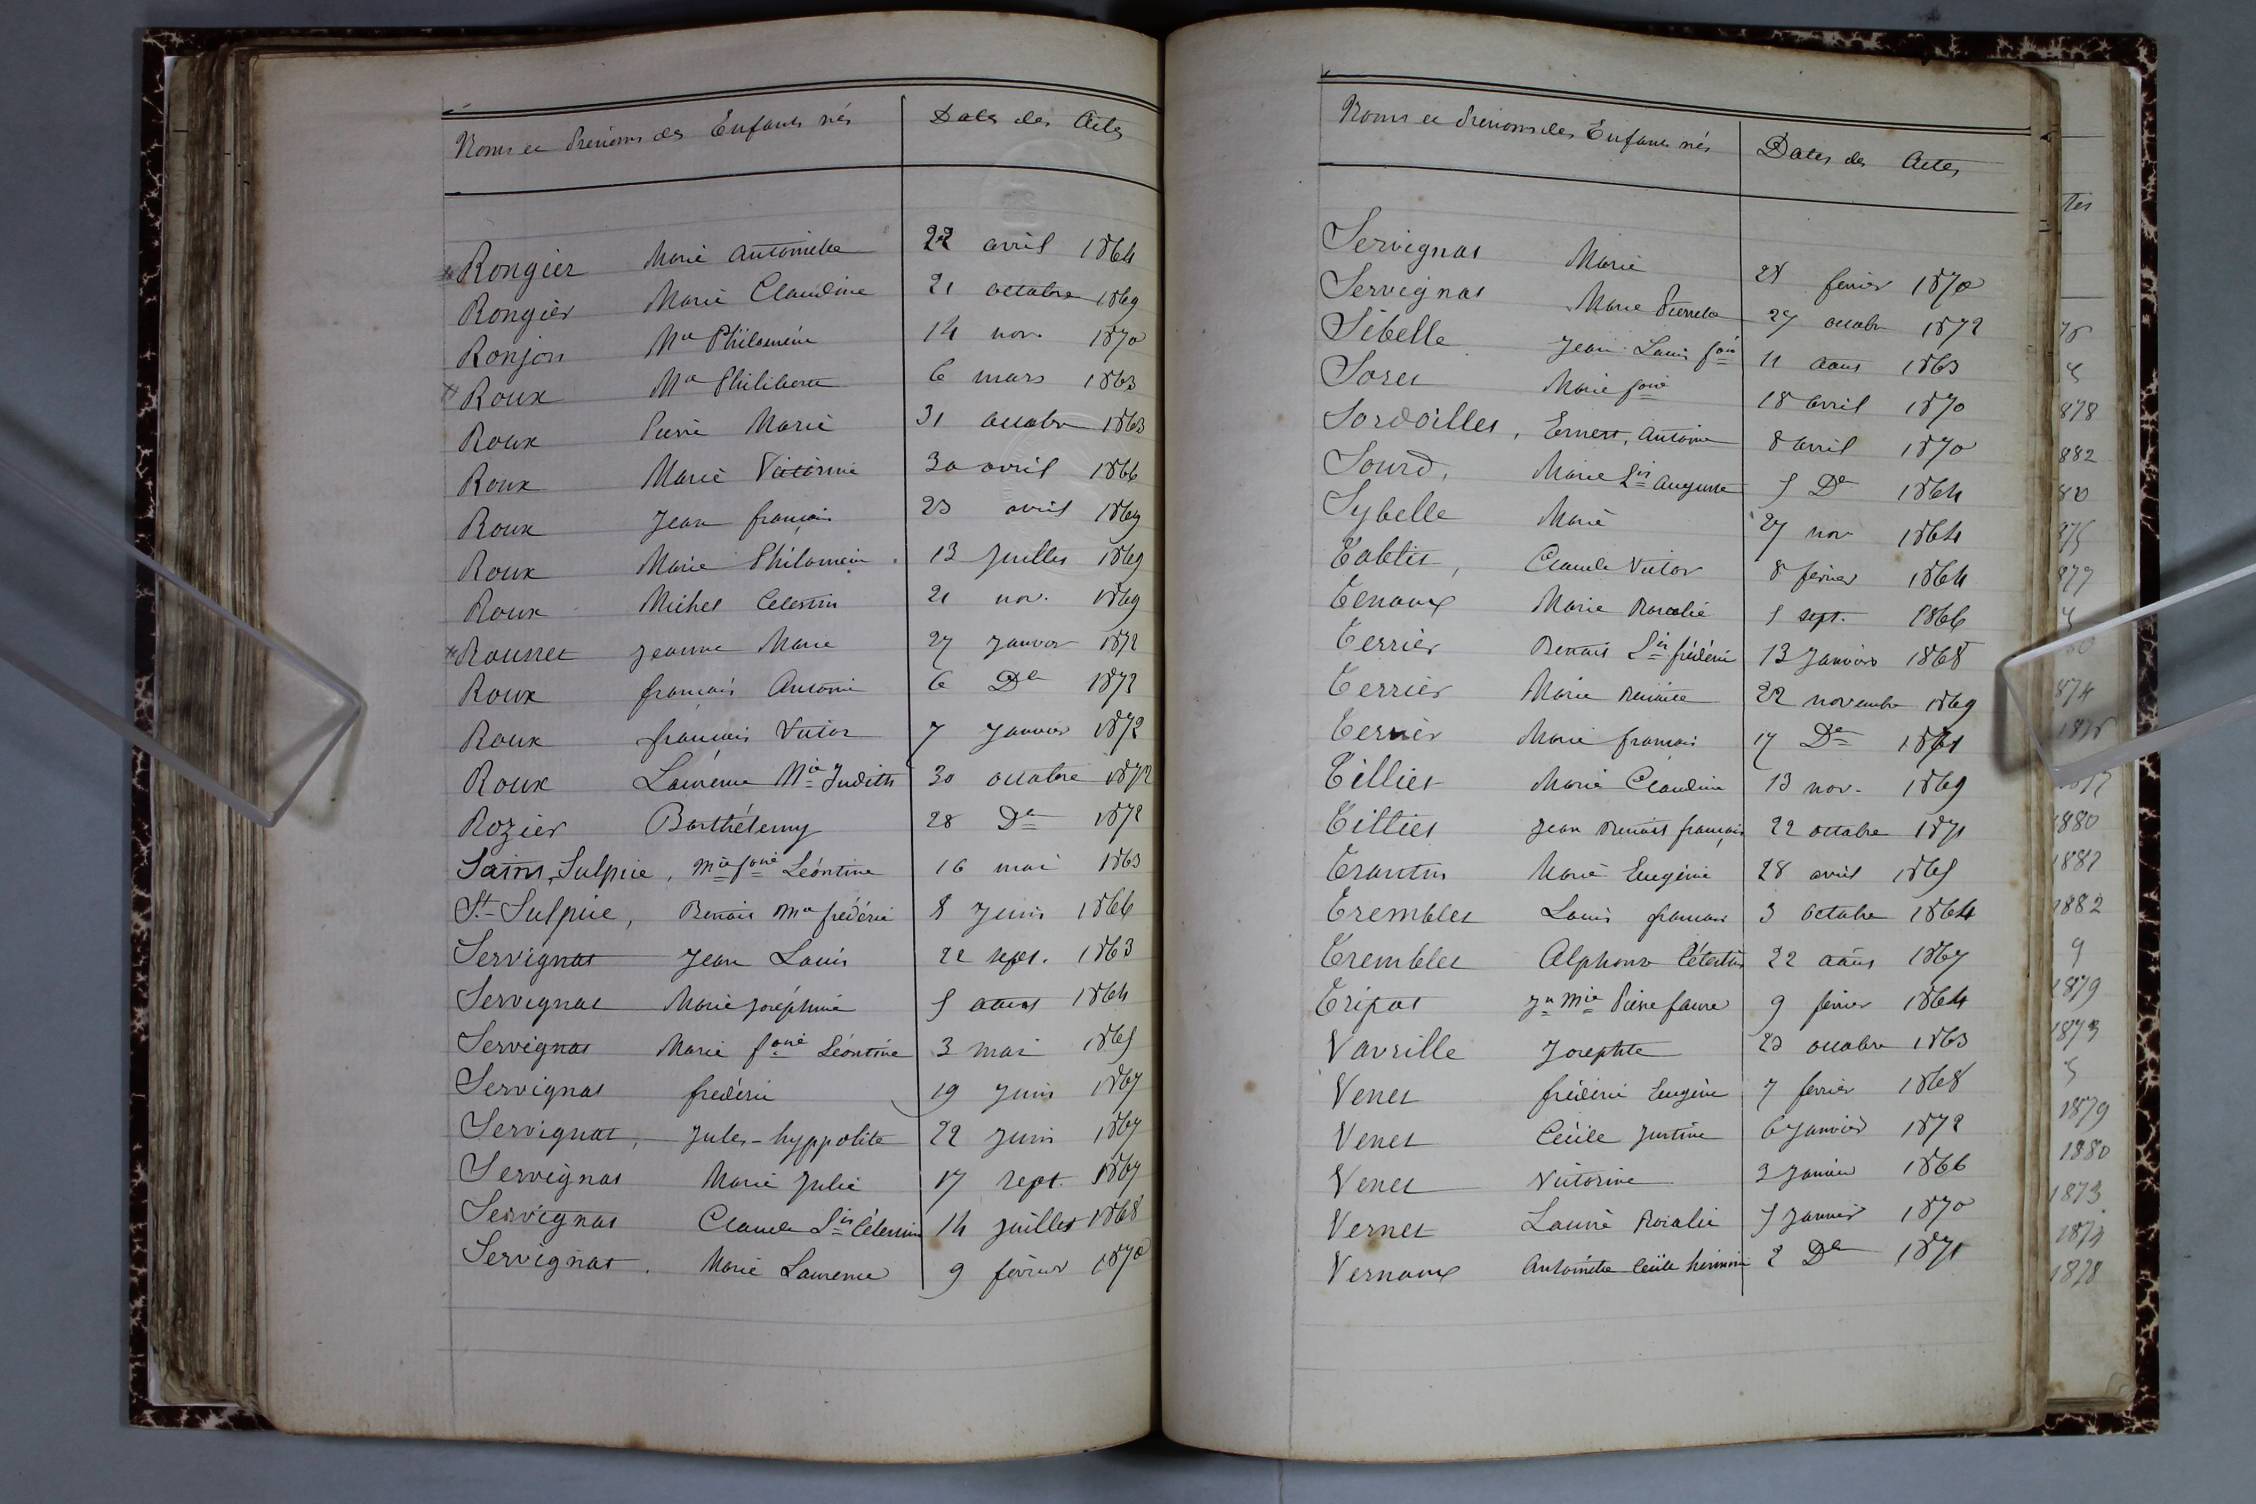 Noms et Prénoms des Enfants nés Dates des Actes
Rongier Marie Antoinette 22 avril 1864
Rongier Marie Claudine 21 octobre 1869
Ronjon Mie Philomène 14 nov. 1870
Roux Mie Philiberte 6 mars 1863
Roux Pierre Marie 31 octobre 1863
Roux Marie Victorine 30 avril 1866
Roux Jean françois 23 avril 1869
Roux Marie Philomène 13 Juillet 1869
Roux Michel Celestin 21 nov. 1869
Rousset Jeanne Marie 27 Janvier 1872
Roux françois Antoine 6 De 1872
Roux françois Victor 7 Janvier 1872
Roux Laurence Mie Judith 30 octobre 1872
Rozier Barthélemy 28 De 1872
Saint Sulpice, Mie fçoise Léontine 16 mai 1863
St Sulpice, Benoit Mie frédéric 8 Juin 1866
Servignat Jean Louis 22 sept. 1863
Servignat Marie Joséphine 5 aout 1864
Servignat Marie fçoise Léontine 3 mai 1865
Servignat frédéric 19 Juin 1867
Servignat, Jules-hyppolite 22 Juin 1867
Servignat Marie Julie 17 sept. 1867
Servignat Claude Lis Célestin 14 Juillet 1868
Servignat. Marie Laurence 9 février 1870
Noms et Prénoms des Enfants nés Dates des Actes
Servignat Marie 28 fevrier 1870
Servignat Marie Pierrette 27 octobre 1872
Sibelle Jean Louis fçois 11 aout 1863
Soret Marie fçoise 18 avril 1870
Sordoilles, Ernest, Antoine 8 avril 1870
Sourd, Marie Lis Auguste 5 De 1864
Sybelle Marie 27 nov 1864
Tablis, Claude Victor 8 février 1864
Tenoux Marie Rosalie 5 sept. 1866
Terrier Benoit Lis frédéric 13 Janvier 1868
Terrier Marie Benoite 22 novembre 1869
Terrier Marie françois 17 De 1871
Tilliet Marie Claudine 13 nov. 1869
Tilliet Jean Benoit françois 22 octobre 1871
Trantin Marie Eugénie 28 avril 1865
Tremblet Louis françois 3 Octobre 1864
Tremblet Alphonse Célestin 22 aout 1867
Tripot Jn Mie Pierre faure 9 février 1864
Vavrille Josephte 23 octobre 1863
Venet frédéric Eugène 7 fevrier 1868
Venet Cécile Justine 6 Janvier 1872
Venet Victorine 3 Janvier 1866
Vernet Laurie Rosalie 5 Janvier 1870
Vernoux Antoinette Cécile herminie 2 De 1871
tes
878
882
80
875
877
874
1880
1882
1882
9
1879
1873
1879
1880
1873
1874
1878